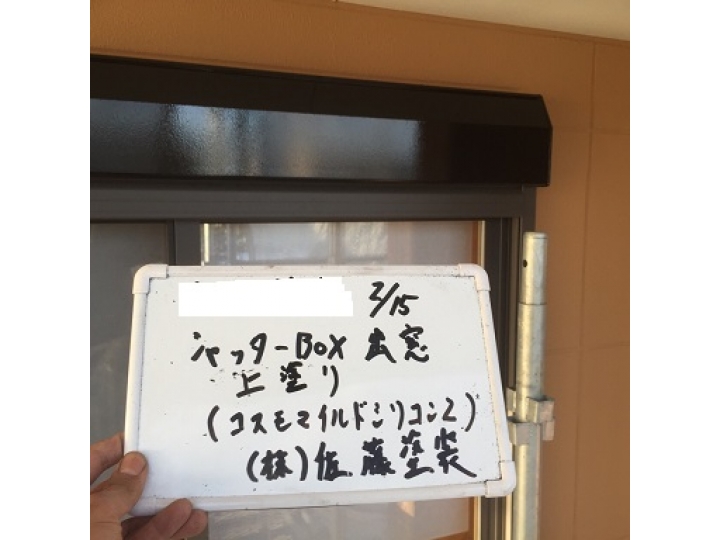 2/15
シャッターBOX 出窓
上塗り
(コスモマイルドシリコン2)
(株)佐藤塗装